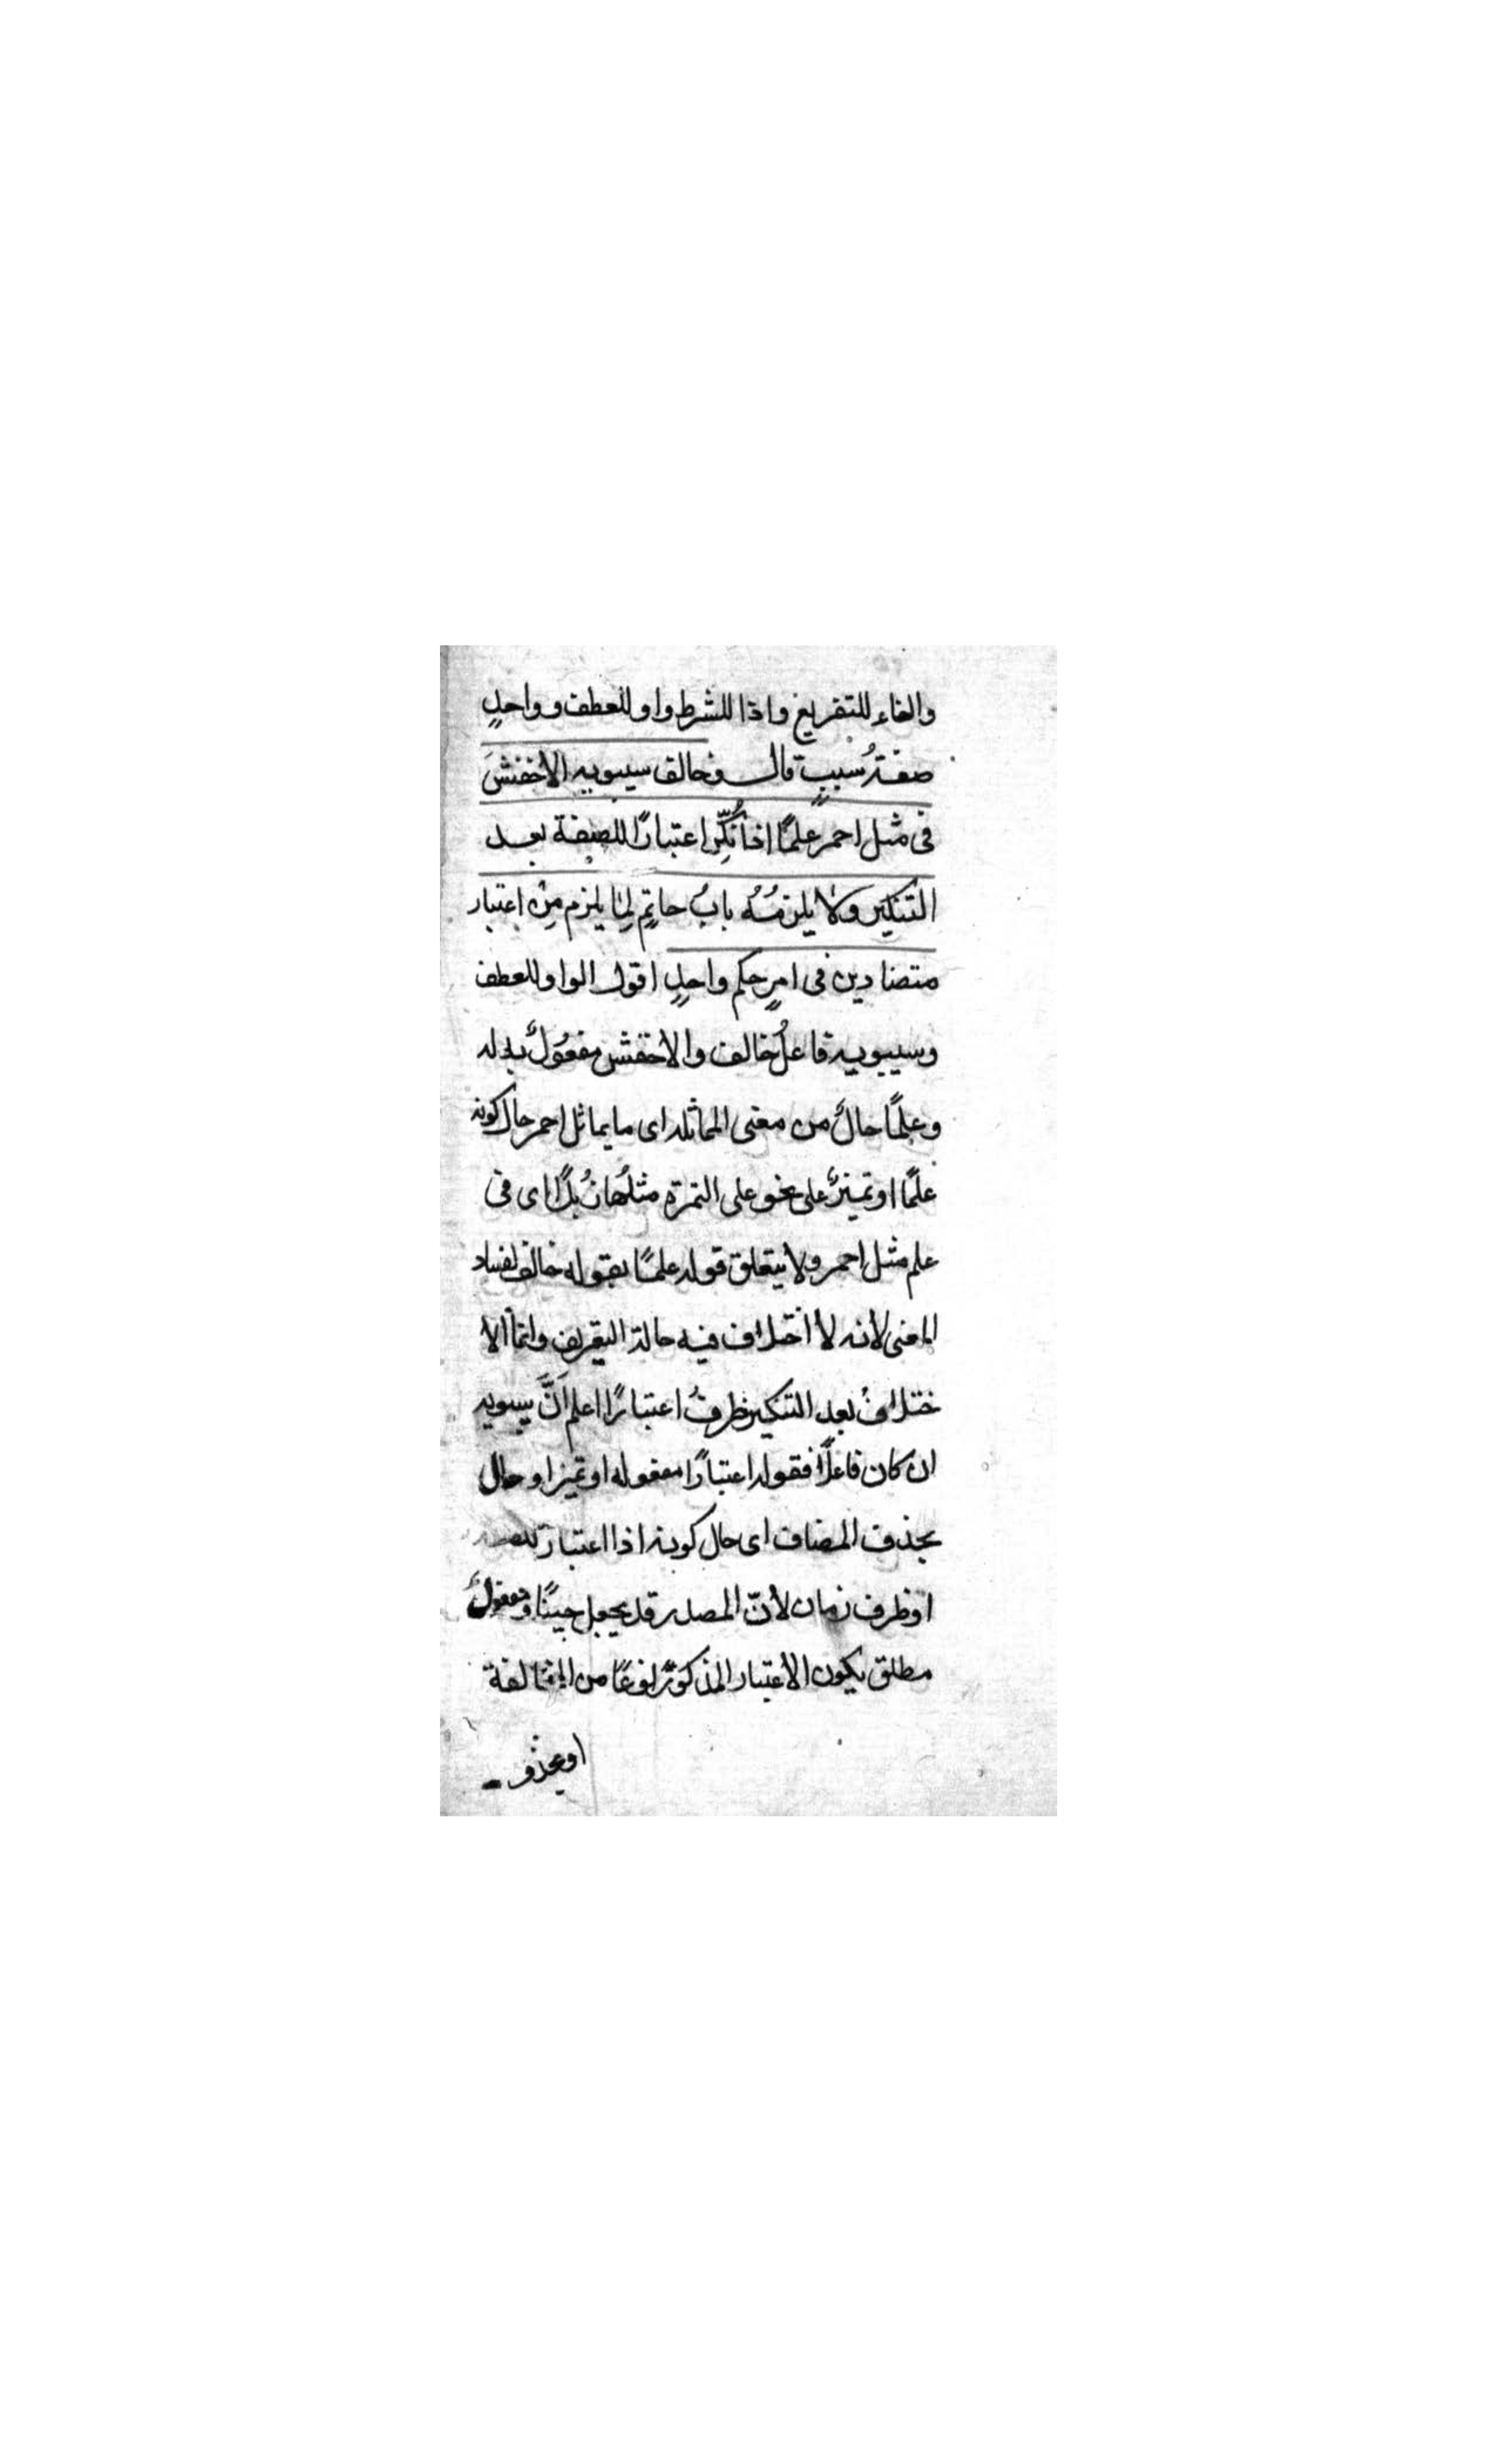 والفاء للتفريع واذا للشرط واو للعطف وواحدٍ
صفةُ سببٍ قال وخالف سيبويه الاخفشَ
فى مثل احمر علمًا اذا نُكِّر اعتبارًا للصفة بعد
التنكير ولا يلزمُهُ بابُ حاتمٍ لِمَا يلزم مِنْ اعتبار
متضادين فى امرٍ حكم واحدٍ اقول الواو للعطف
وسيبويه فاعلُ خالف والاخفش مفعُولٌ به له
وعلمًا حالٌ من معنى المماثله اى ما يماثل احمر حال كونه
علمًا او تميزٌ على نحو على التمرة مثلُها زُبدًا اى فى
علم مثل احمر ولا يتعلق قوله علمًا بقوله خالف لفساد
المعنى لانه لا اختلاف فيه حالة التعريف وانما الا
ختلافُ بعد التنكير ظرفُ اعتبارًا اعلم اَنَّ سيبويه
ان كان فاعلًا فقوله اعتبارًا مفعوله او تميز او حال
بحذف المضاف اى حال كونه اذا اعتبار
او ظرف زمان لأنّ المصدر قد يجعل حينًا ومفعولٌ
مطلق يكون الاعتبار المذكور نوعًا من المخالفة
او بحذف